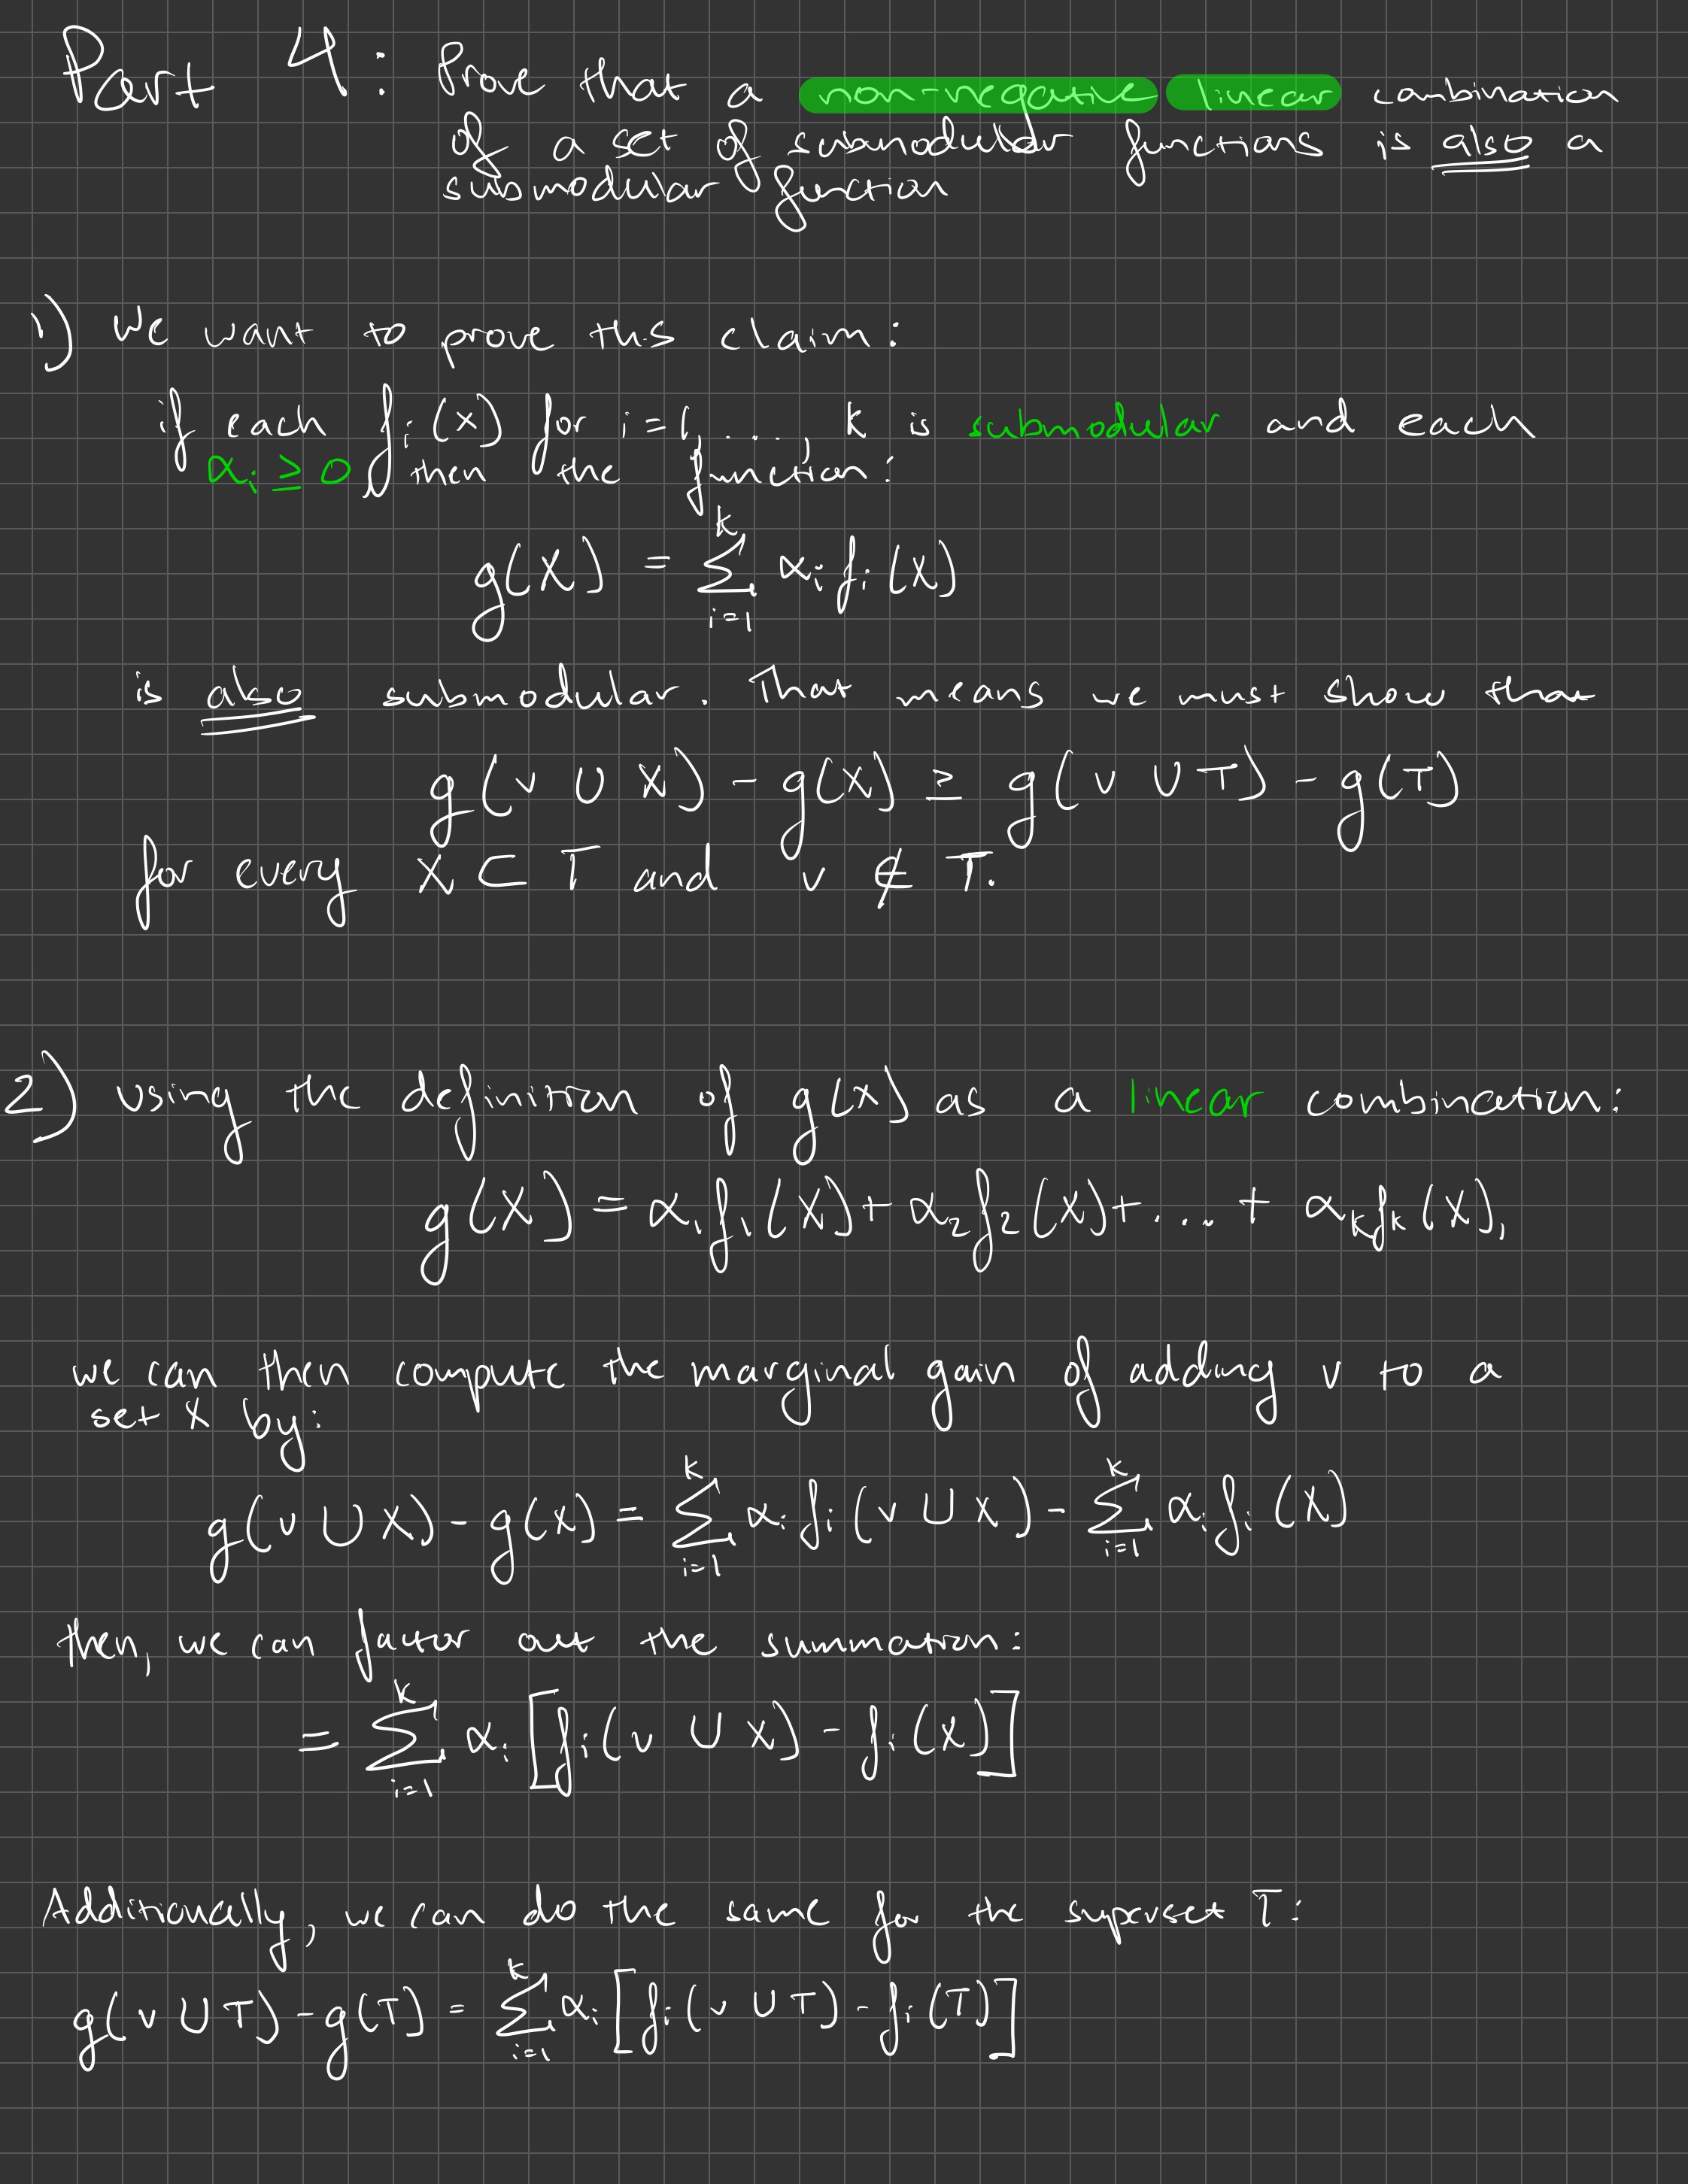 Part 4: Prove that a non-negative linear combination
of a set of submodular functions is also a
submodular function
1) We want to prove this claim:
if each fᵢ(x) for i=1, ..., k is submodular and each
αᵢ ≥ 0 then the function:
g(X) = ∑_{i=1}^{k} αᵢ fᵢ(X)
is also submodular. That means we must show that
g(v ∪ X) - g(X) ≥ g(v ∪ T) - g(T)
for every X ⊂ T and v ∉ T.
2) Using the definition of g(x) as a linear combination:
g(X) = α₁f₁(X) + α₂f₂(X) + ... + αₖfₖ(X),
we can then compute the marginal gain of adding v to a
set X by:
g(v ∪ X) - g(X) = ∑_{i=1}^{k} αᵢ fᵢ(v ∪ X) - ∑_{i=1}^{k} αᵢ fᵢ(X)
then, we can factor out the summation:
= ∑_{i=1}^{k} αᵢ [fᵢ(v ∪ X) - fᵢ(X)]
Additionally, we can do the same for the superset T:
g(v ∪ T) - g(T) = ∑_{i=1}^{k} αᵢ [fᵢ(v ∪ T) - fᵢ(T)]